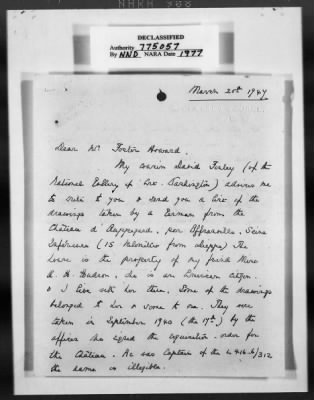 DECLASSIFIED
Authority 775057
By NND NARA Date 1977
March 20th 1947
Dear Mr Foster Howard.
My cousin David Finley (of the
National Gallery of Art. Washington) advises me
to write to you & send you a list of the
drawings taken by a German from the
Château d' near Offranville, Seine
Inférieure (15 kilomètres from Dieppe) The
house is the property of my friend Mme
A. H. Hudson, she is an American citizen
& I live with her there, Some of the drawings
belonged to her & some to me. They were
taken in September 1940 (the 17th) by the
officer who signed the requisition order for
the Château. He was Captain of the
the name is illegible.